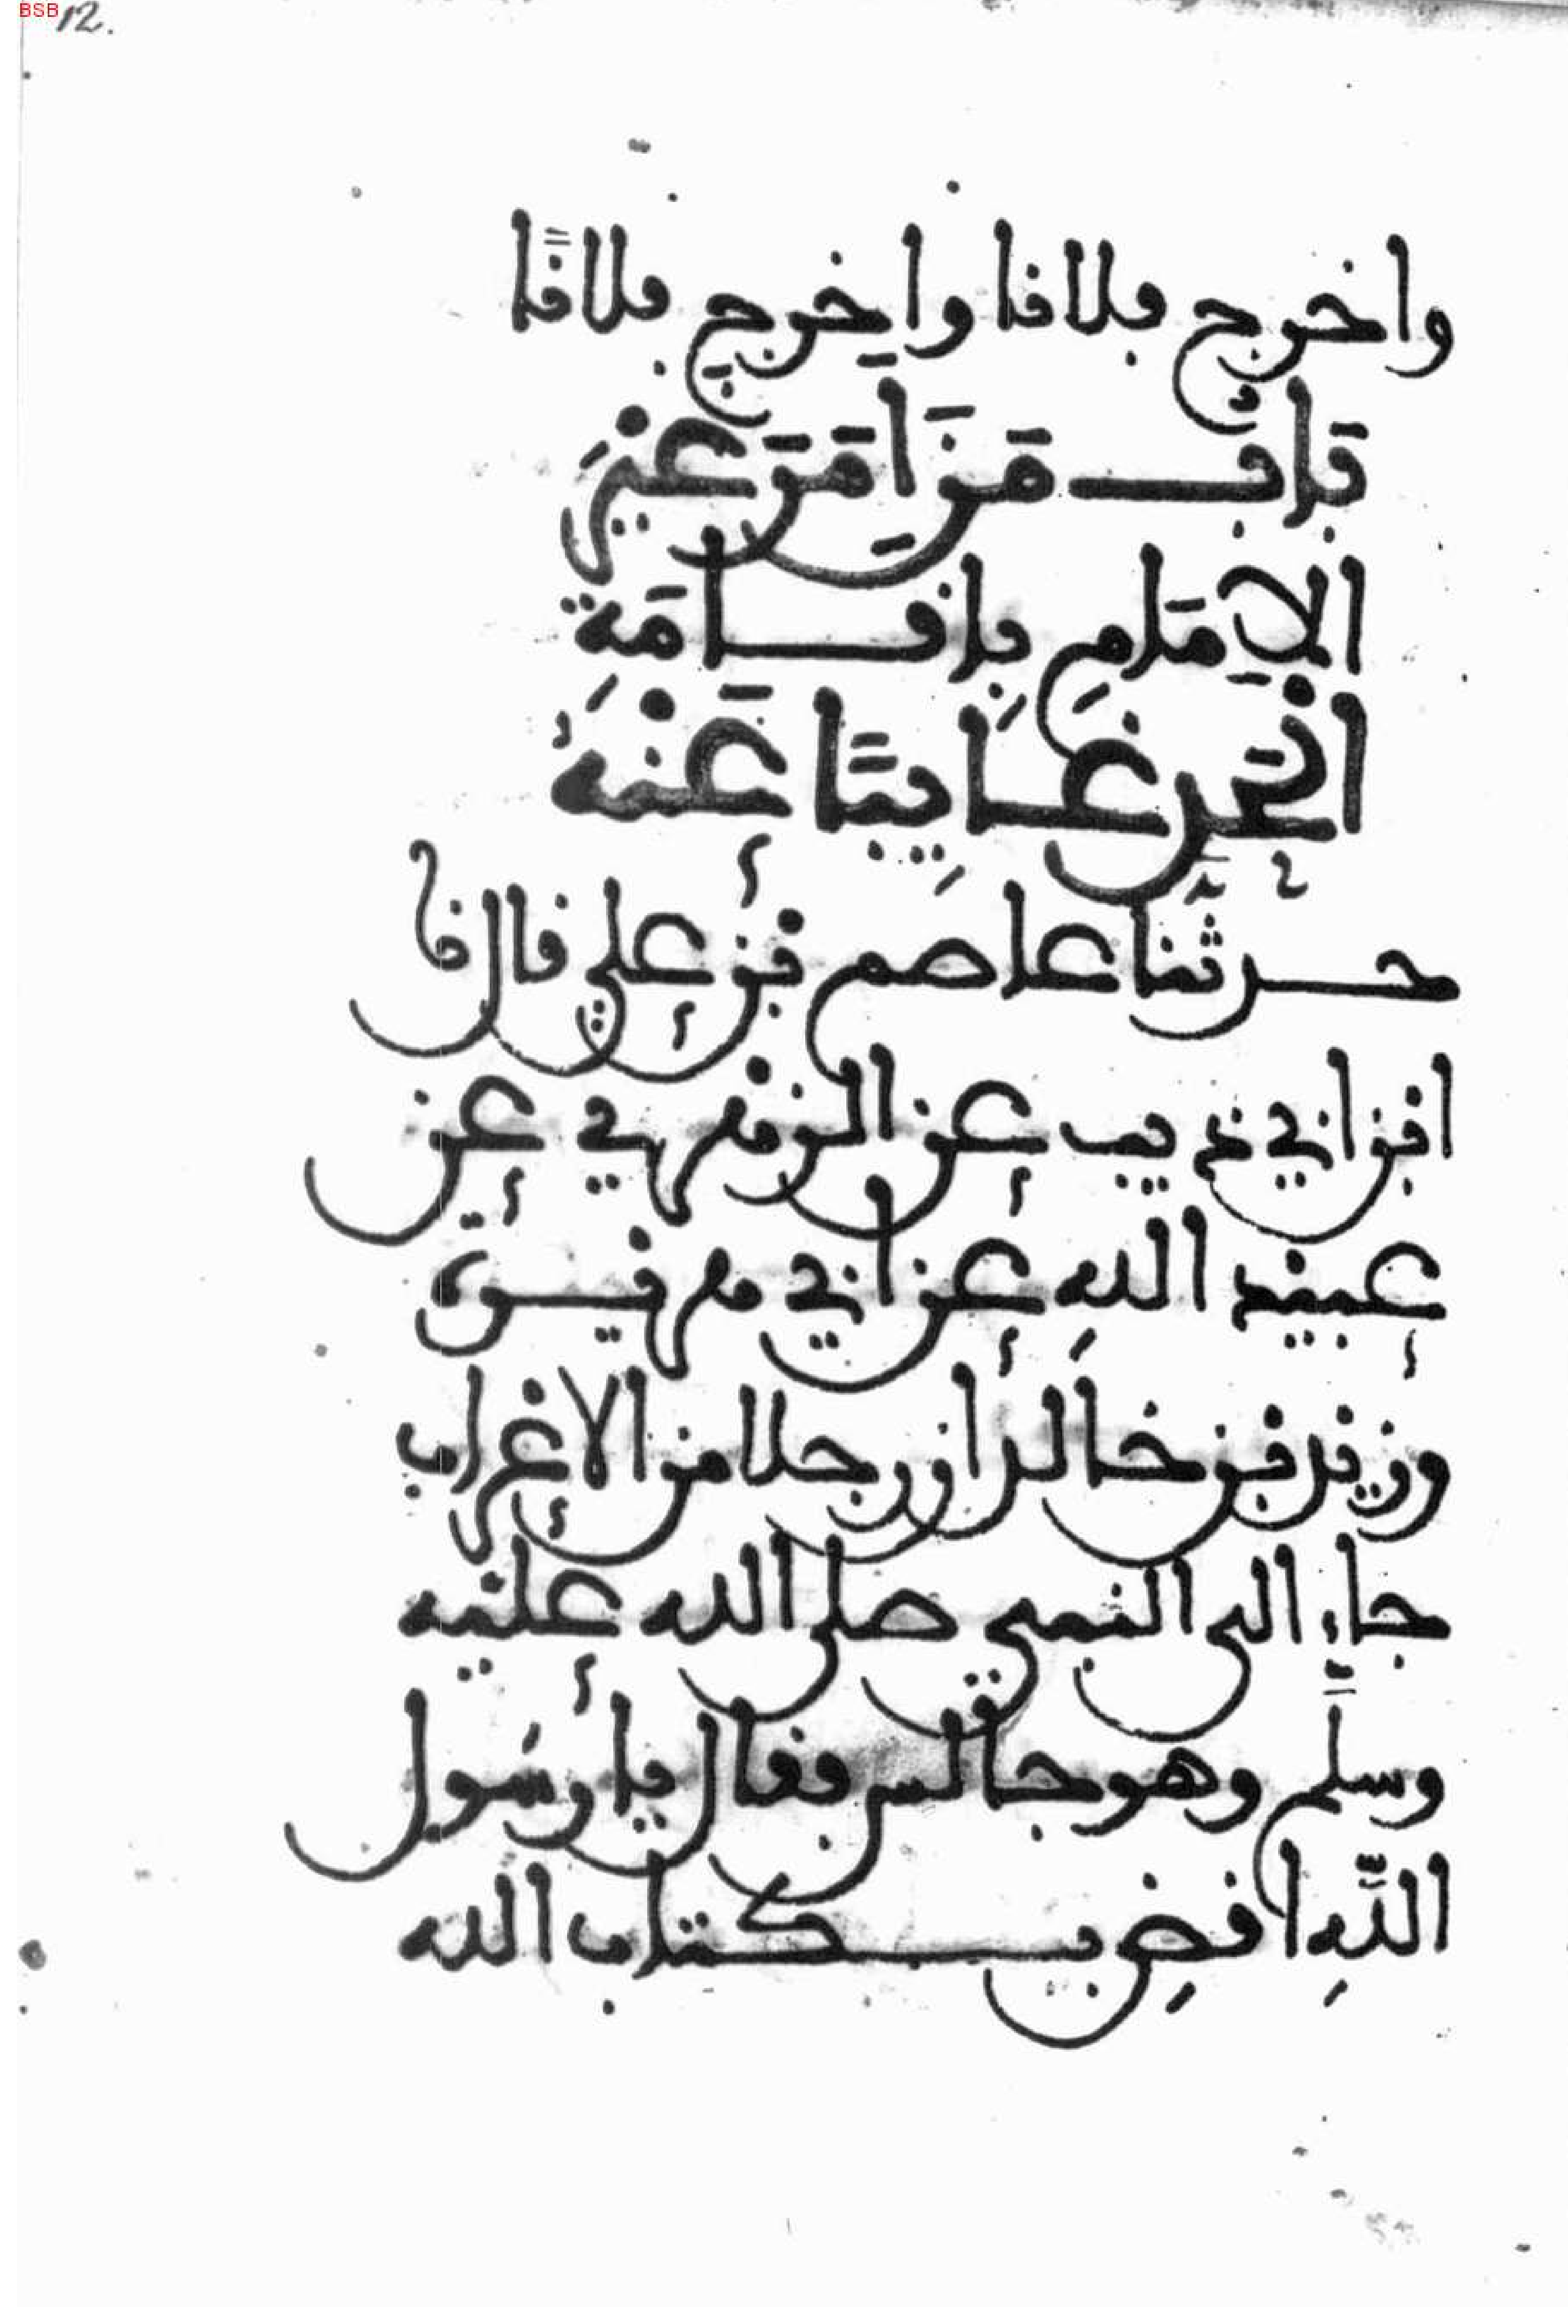 BSB 12.
واخرج فلانا واخرج فلانًا
بَابُ مَنَ اَمَرَ غَيْرَ
الاِمَامِ بِاقامَةِ
الحَدِ غَايِبًا عَنْهُ
حدثنا عاصم بن علي قال نا
ابن ابي ذيب عن الزهري عن
عبيد اللهِ عن ابي هريرة
وزيد بن خالد ان رجلا من الاعراب
جاء الى النبي صلى الله عليه
وسلَّم وهو جالس فقال يا رسُول
اللَّهِ اقضِ بكتاب الله